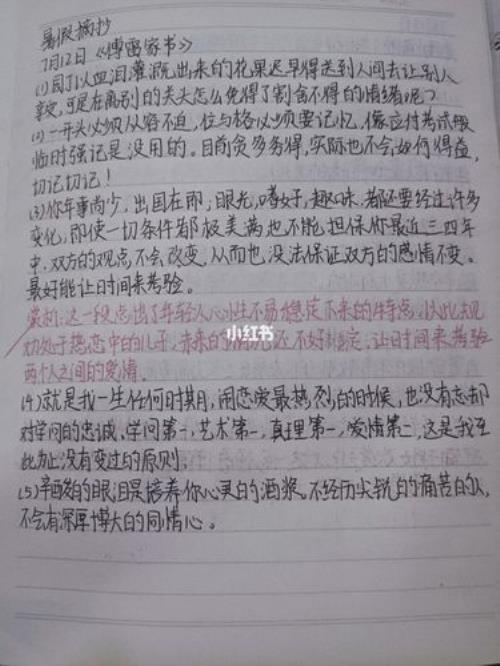 暑假摘抄
7月12日《傅雷家书》
(1)园丁以血泪灌溉出来的花果迟早得送到人间去让别人
享受,可是在离别的关头怎么免得了割舍不得的情绪呢?
(2)一开头必须从容不迫,位与格必须要记忆,像应付考试般
临时强记是没用的。目前贪多务得,实际也不会如何得益,
切记切记!
(3)你年事尚少,出国在即;眼光,嗜好,趣味,都还要经过许多
变化,即使一切条件都极美满也不能担保你最近三四年
中,双方的观点不会改变,从而也没法保证双方的感情不变。
最好能让时间来考验。
赏析:这一段点出了年轻人心性不易稳定下来的特点,以此
处于热恋中的儿子,未来的情况还不好制定,让时间来考验
两个人之间的爱情。
小红书
(4)就是我一生任何时期,闹恋爱最热烈的时候,也没有忘却
对学问的忠诚。学问第一,艺术第一,真理第一,爱情第二,这是我至
此为止没有变过的原则。
(5)辛酸的眼泪是培养你心灵的酒浆。不经历尖锐的痛苦的人,
不会有深厚博大的同情心。